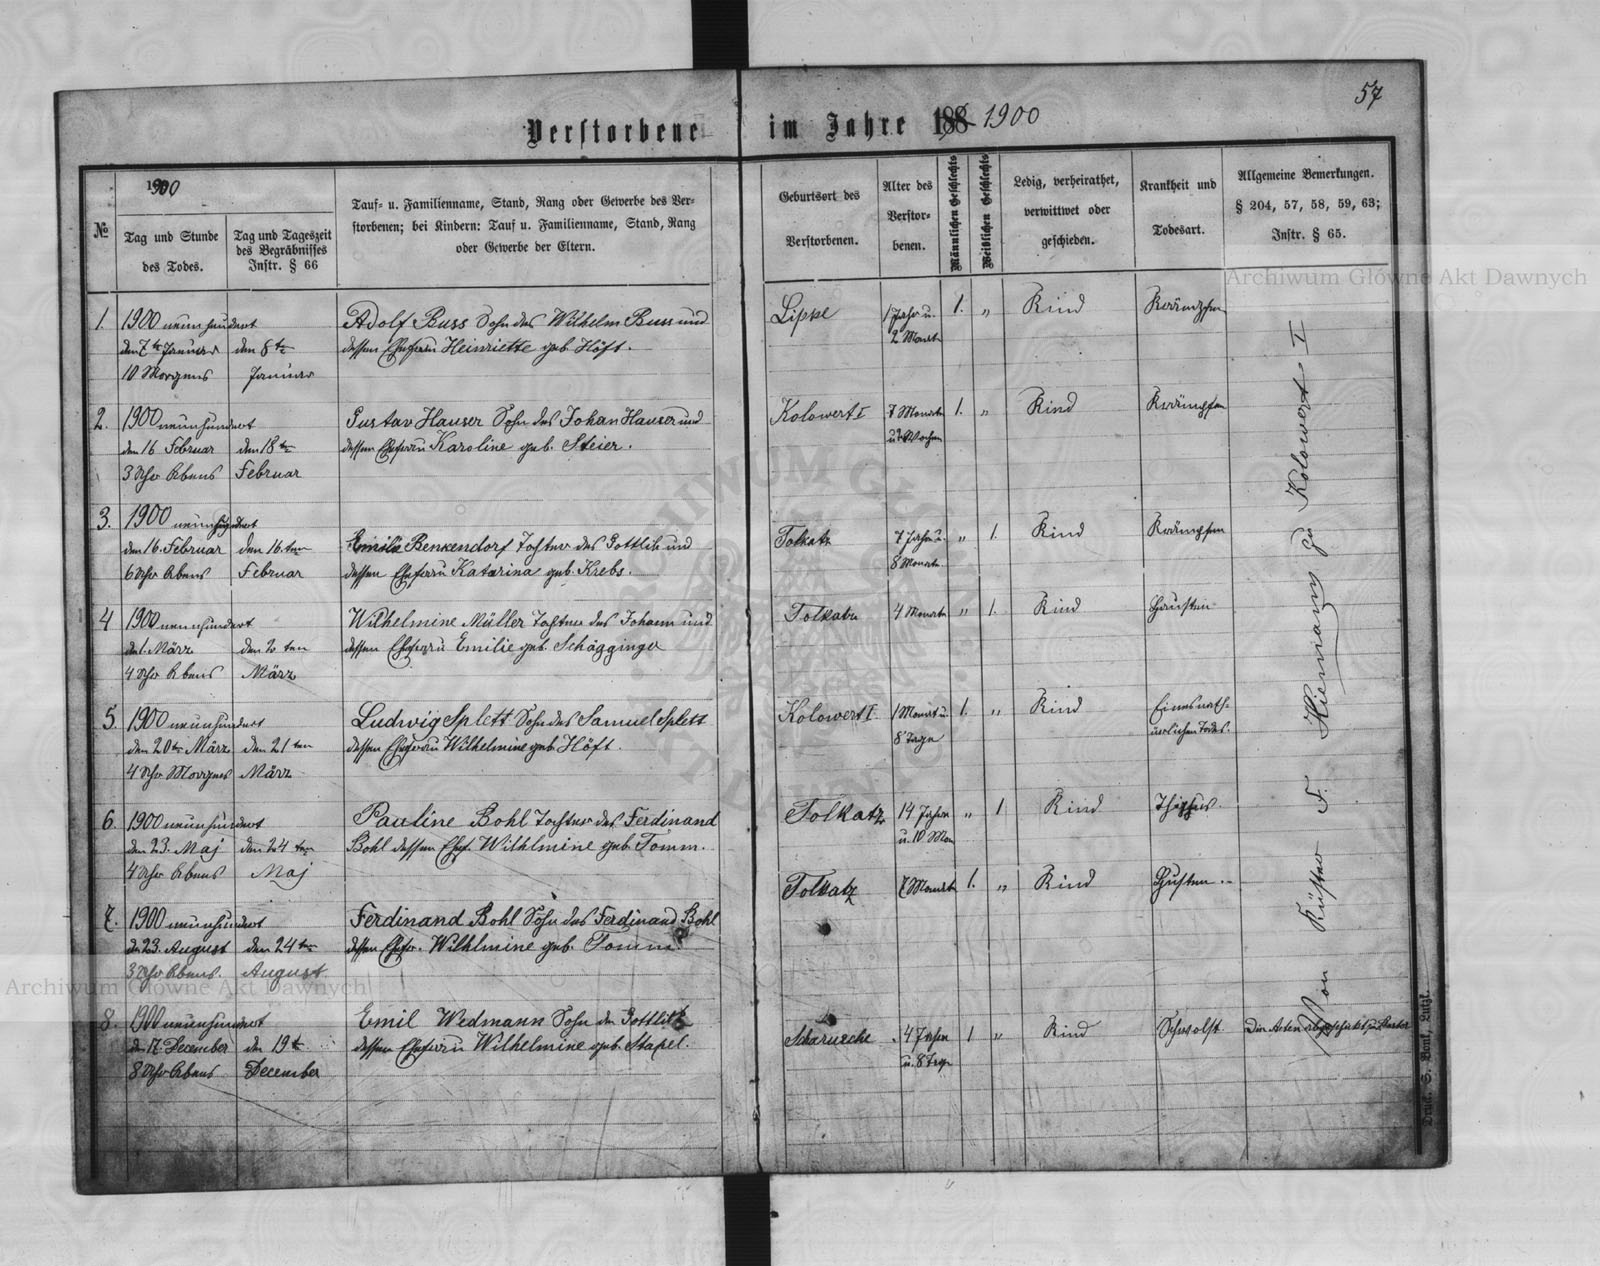 57
Verstorbene im Jahre 188 1900
1900
№
Tag und Stunde
des Todes.
Tag und Tageszeit
des Begräbnisses
Instr. § 66
Tauf- u. Familienname, Stand, Rang oder Gewerbe des Ver-
storbenen; bei Kindern: Tauf u. Familienname, Stand, Rang
oder Gewerbe der Eltern.
Geburtsort des
Verstorbenen.
Alter des
Verstor-
benen.
Männlichen Geschlechts
Weiblichen Geschlechts
Ledig, verheirathet,
verwittwet oder
geschieden.
Krankheit und
Todesart.
Allgemeine Bemerkungen.
§ 204, 57, 58, 59, 63;
Instr. § 65.
Archiwum Główne Akt Dawnych
1. 1900 neunhundert
den 7te Januar den 8te
10 Morgens Januar
Adolf Buss Sohn des Wilhelm Buss und
dessen Ehefrau Heinriette geb. Höft.
Lipke 1 Jahr u. 1. „ Kind Krämpfen
2 Monat
2. 1900 neunhundert
den 16 Februar den 18te
3 Uhr Abens Februar
Gustav Hauser Sohn des Johan Hauser und
dessen Ehefrau Karoline geb. Steier.
Kolowert I 7 Monate 1. „ Kind Krämpfen
3. 1900 neunhundert
den 16. Februar den 16. ten
6 Uhr Abens Februar
Emilie Benkendorf Tochter des Gottlib und
dessen Ehefrau Katarina geb. Krebs.
Tolkatz 7 Jahr u. „ 1. Kind Krämpfen
8 Monate.
4 1900 neunhundert
den 1. März den 2 ten
4 Uhr Abens März
Wilhelmine Müller Tochter des Johann und
dessen Ehefrau Emilie geb.
4 Monate „ 1. Kind Hausten
5. 1900 neunhundert
den 20te März den 21 ten
4 Uhr Morgens März
Ludwig Splett Sohn des Samuel Splett
dessen Ehefrau Wilhelmine geb. Höft.
Kolowert I. 1 Monat u. 1. „ Kind Eines nath-
8 Tage uerlichen Todes.
6. 1900 neunhundert
den 23. Maj den 24 ten
4 Uhr Abens Maj
Pauline Bohl Tochter des Ferdinand
Bohl dessen Ehef. Wilhlmine geb. Tomm.
Tolkatz 14 Jahre „ 1 Kind
u. 10 Mon
7. 1900 neunhundert
den 23. August den 24 ten
3 Uhr Abens. August
Ferdinand Bohl Sohn des Ferdinand Bohl
dessen Ehefr. Wilhlmine geb. Tomm
Tolkatz 7 Monate 1. „ Kind Husten.
8. 1900 neunhundert
den 17. December den 19te
8 Uhr Abens December
Emil Wedmann Sohn den Gottlieb
dessen Ehefrau Wilhelmine geb. Stapel.
4 Jahre 1 „ Kind
u. 8 Tage
Von Küster F. zu Kolowert I
Archiwum Główne Akt Dawnych
Druck S. Bonk, Lutzk.